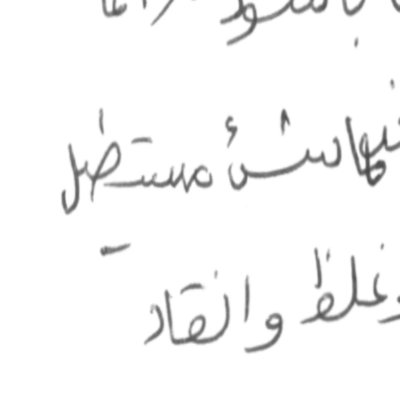 فيها شئ مستطيل
وغلظ وانقاد